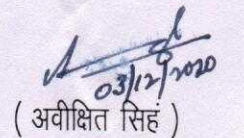 03/12/2020
( अवीक्षित सिहं )